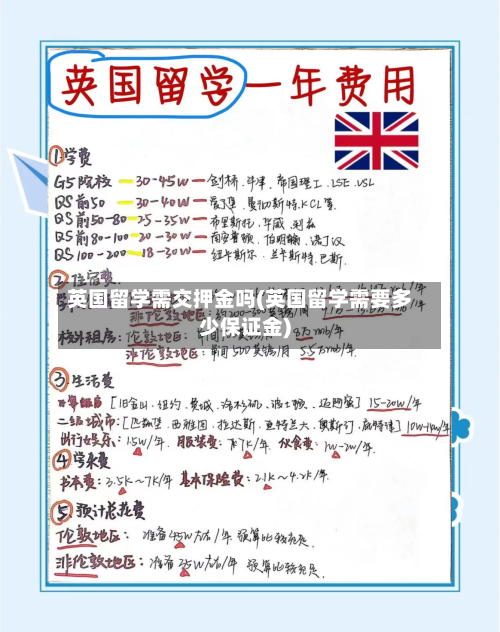 英国留学一年费用
①学费
G5院校 — 30-45W — 剑桥、牛津、帝国理工、LSE、USL
QS前50 — 30-40W — 爱丁堡、曼彻斯特、KCL等
QS前50-80 — 25-35W — 布里斯托、华威、利兹
QS前80-100 — 20-30W — 南安普顿、伯明翰、诺丁汉
QS100-200 — 18-30W — 纽卡斯尔、兰卡斯特、巴斯.
②住宿费
英国留学需交押金吗(英国留学需要多少保证金)
非伦敦地区:
校外租房:
8万rmb/年.
非伦敦地区: 单间500英镑/月 5.5万rmb/年.
③.生活费
[旧金山、纽约、费城、洛杉矶、波士顿、迈阿密] 15-20W/年
二线城市:[匹兹堡、西雅图、拉达斯、亚特兰大、奥斯汀、底特律]
出行娱乐: 1.5W/年. 服装费: 伙食费: 1W-2W/年.
④学杂费
书本费: 3.5K~7K/年 基本保险费: 2.1K~4.2K/年.
⑤.预计总花费
伦敦地区: 准备45W左右/年 预算比较充足.
非伦敦地区: 准备35W左右/年 预算比较充足.